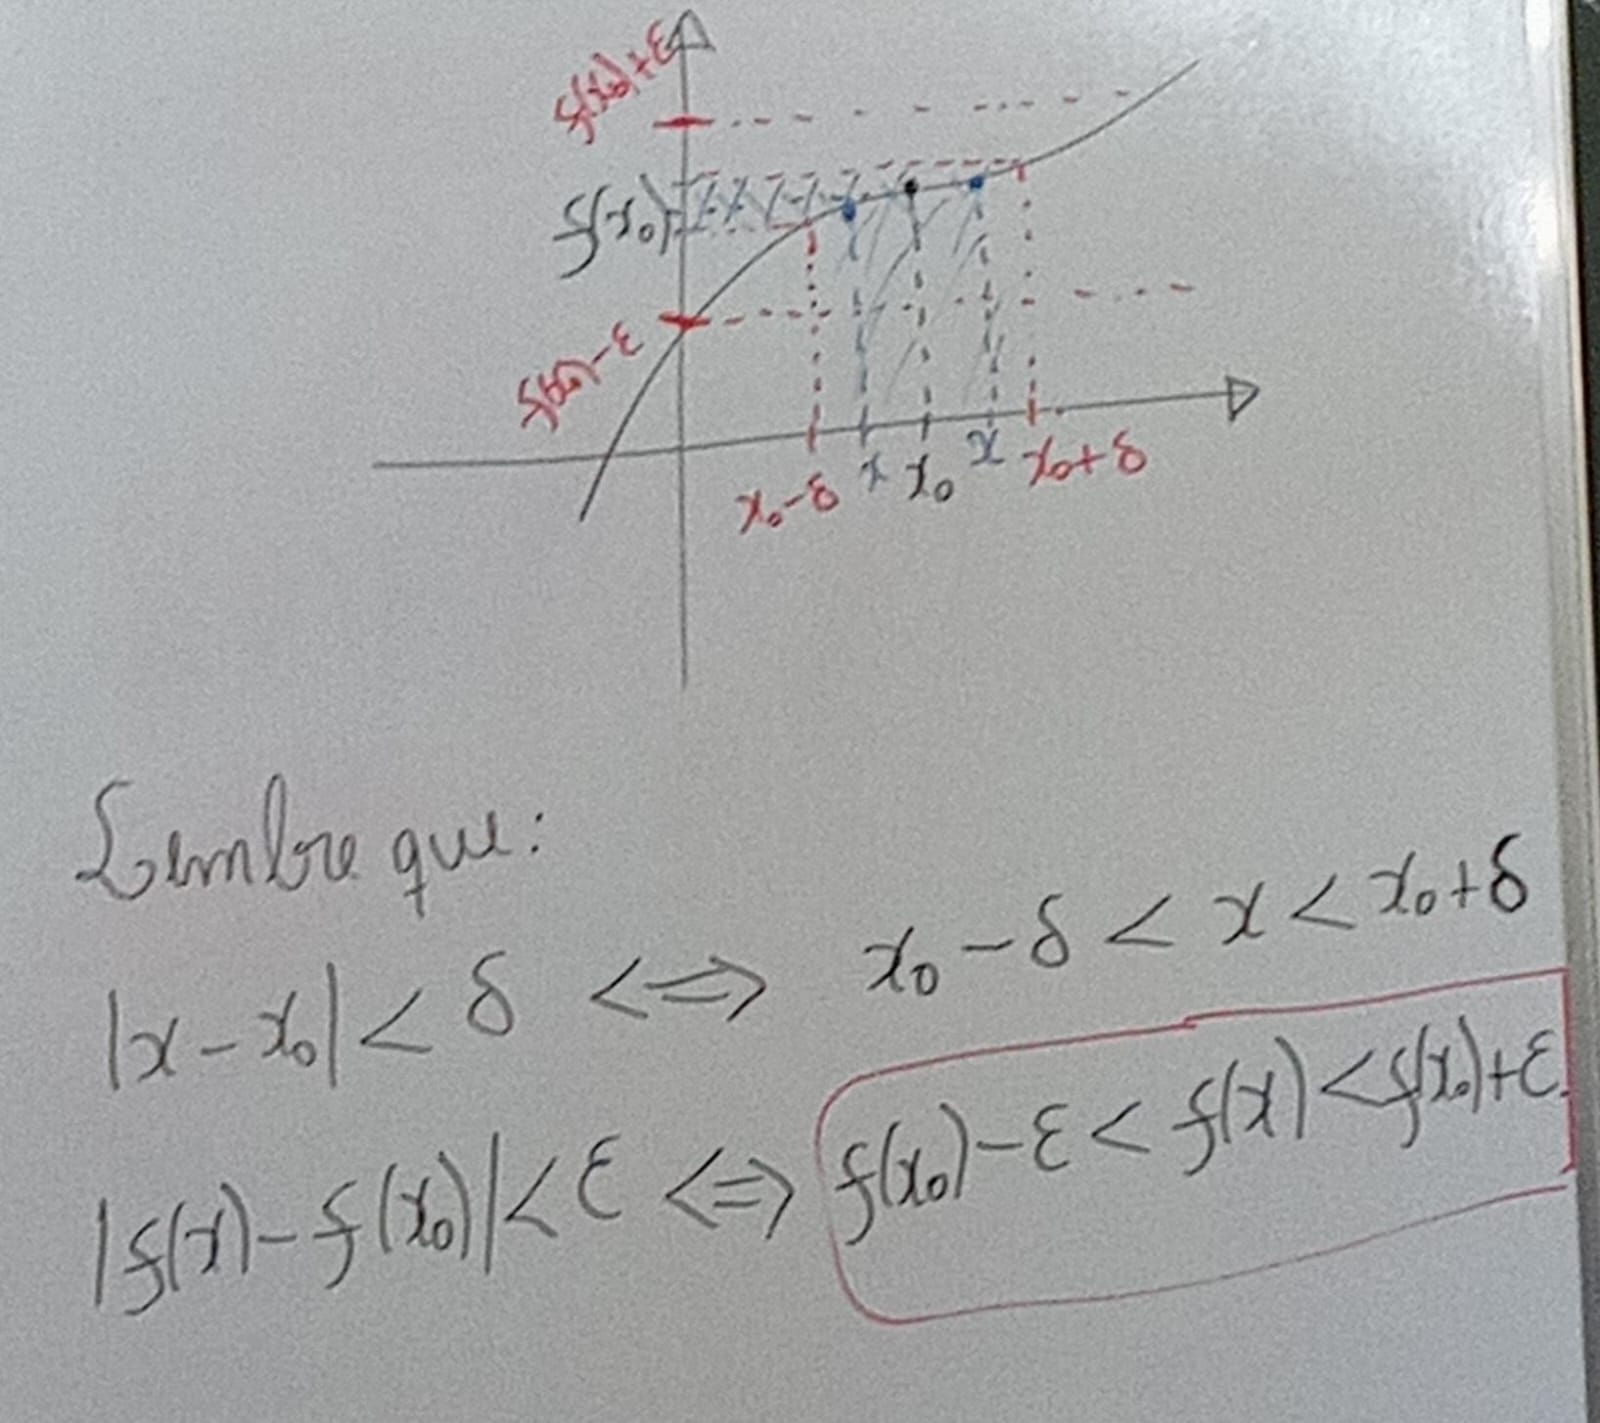 f(x₀)+ε
f(x₀)
f(x₀)-ε
x₀-δ x x₀ x x₀+δ
Lembre que:
|x-x₀| < δ <=> x₀-δ < x < x₀+δ
|f(x)-f(x₀)| < ε <=> f(x₀)-ε < f(x) < f(x₀)+ε